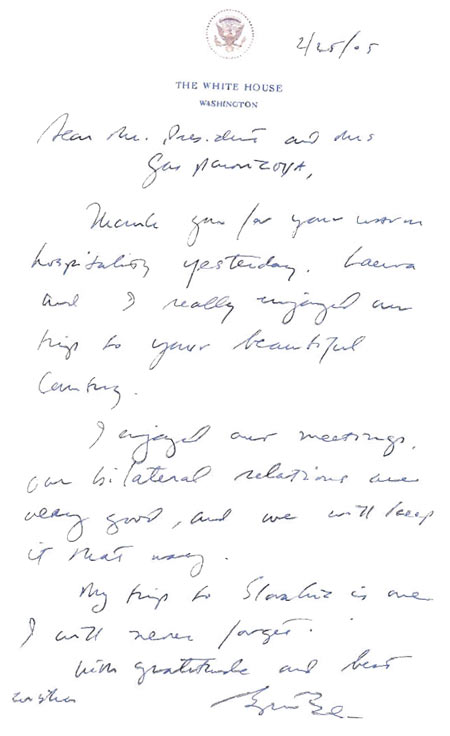 2/25/05
THE WHITE HOUSE
WASHINGTON
Dear Mr. President and Mrs
Gasparovicova,
Thank you for your warm
hospitality yesterday. Laura
and I really enjoyed our
trip to your beautiful
Country.
I enjoyed our meetings.
our bilateral relations are
very good, and we will keep
it that way.
My trip to Slovakia is one
I will never forget.
With gratitude and best
wishes